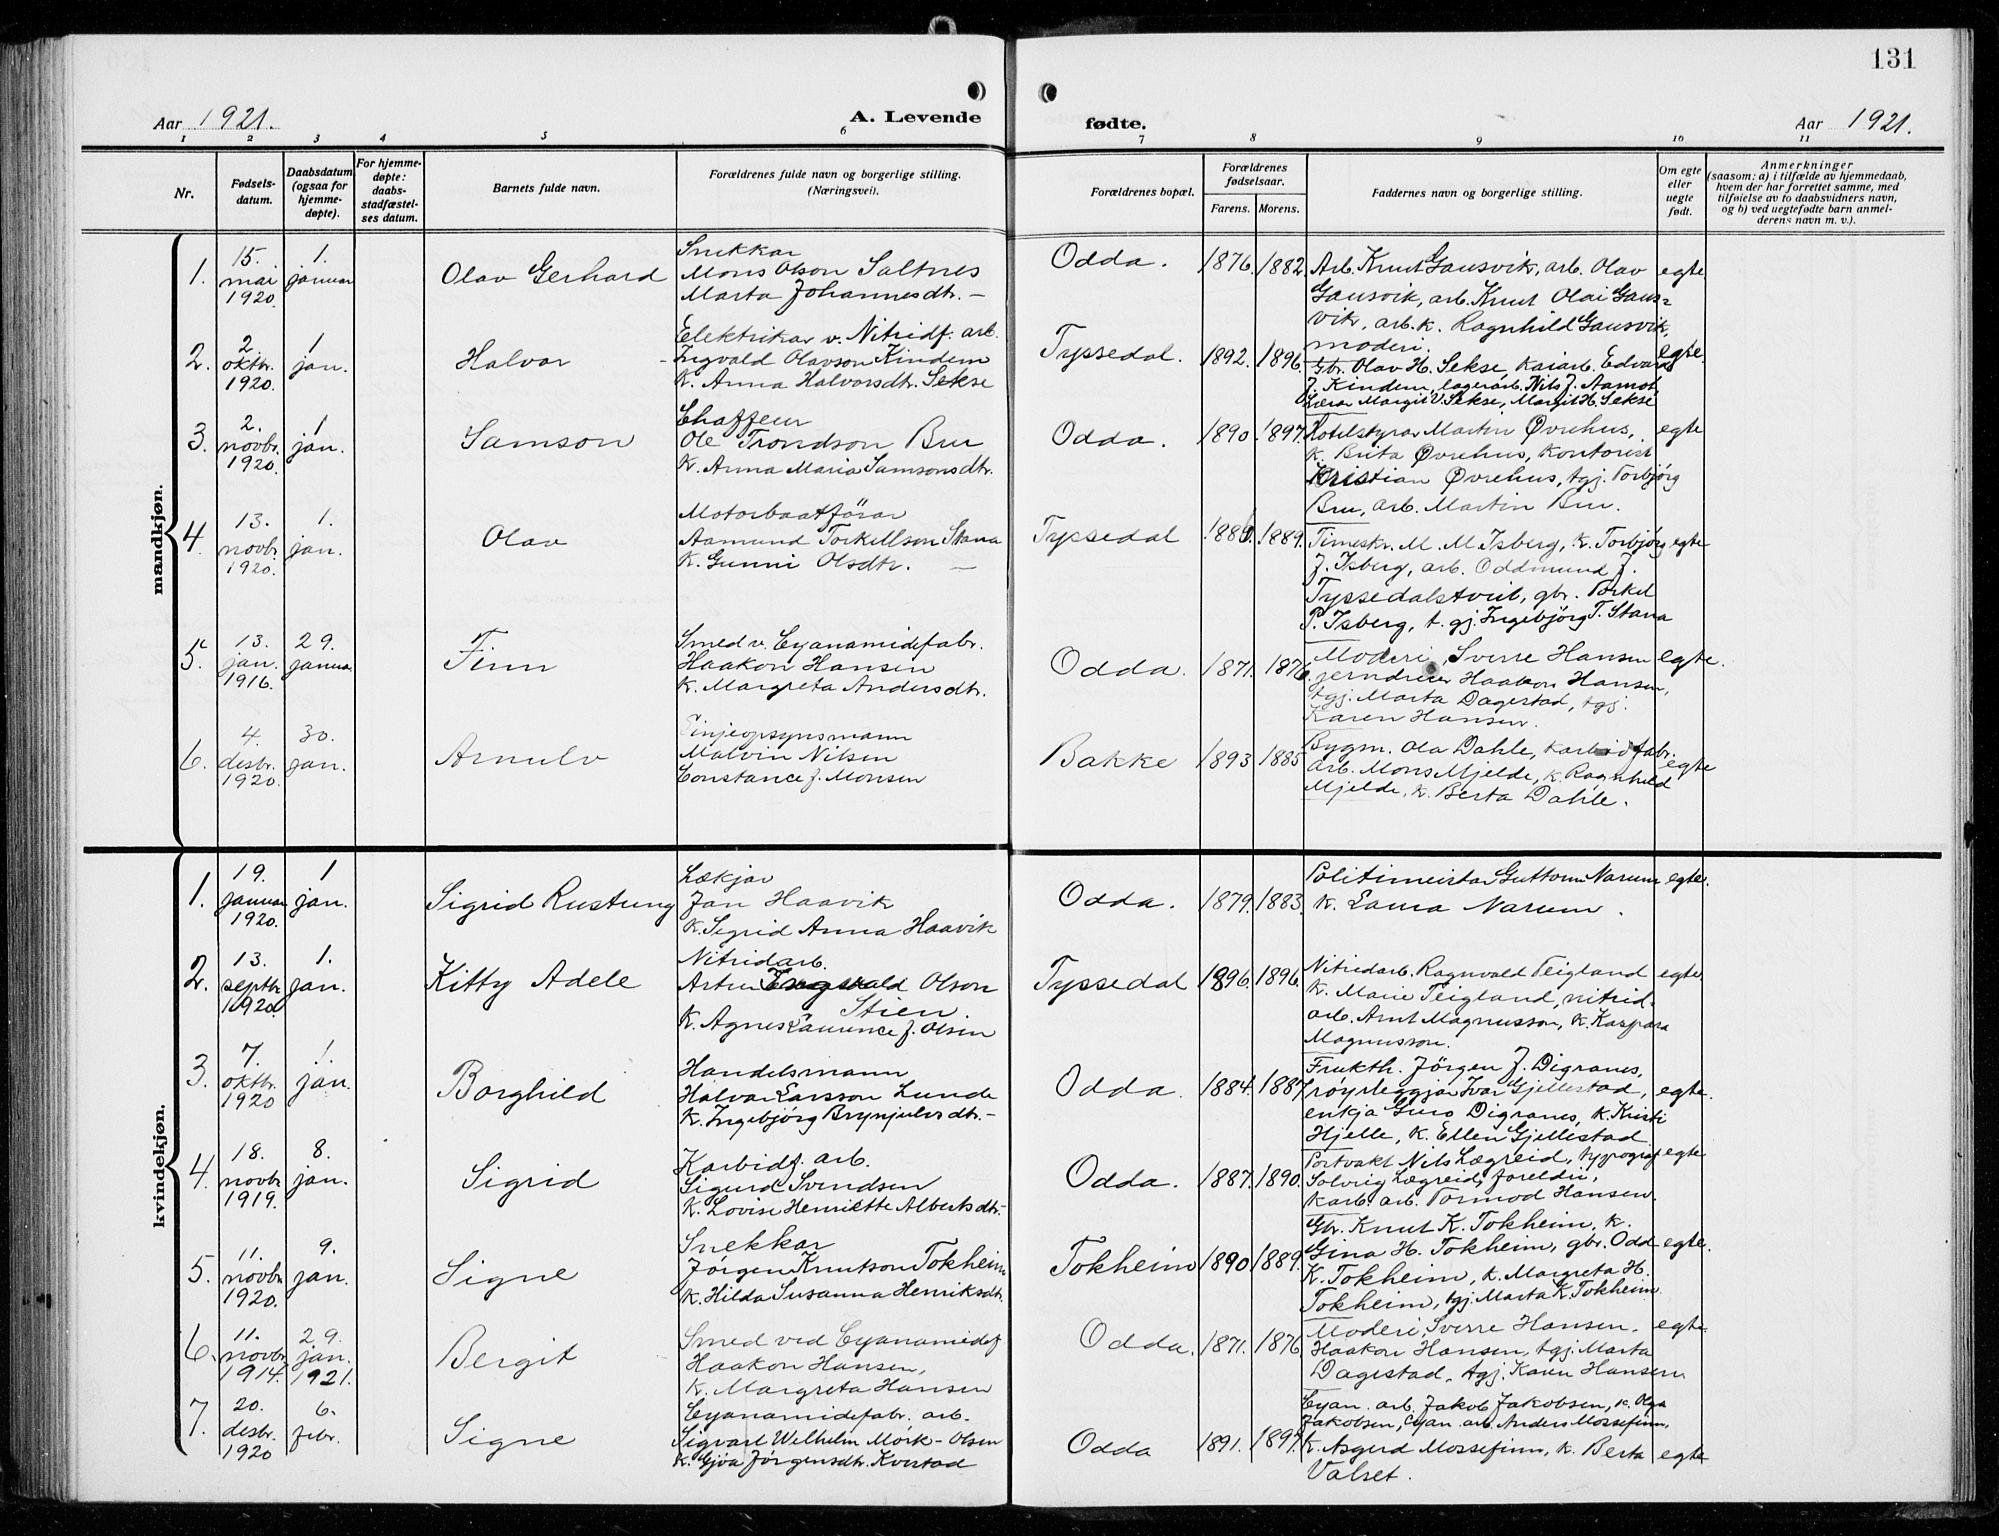 131
Aar 1921.
A. Levende
fødte.
Aar 1921.
1 2 3 4 5 6 7 8 9 10 11
Nr.
Fødsels-
datum.
Daabsdatum
(ogsaa for
hjemme-
døpte).
For hjemme-
døpte:
daabs-
stadfæstel-
ses datum.
Barnets fulde navn.
Forældrenes fulde navn og borgerlige stilling.
(Næringsvei).
Forældrenes bopæl.
Forældrenes
fødselsaar.
Farens. Morens.
Faddernes navn og borgerlige stilling.
Om egte
eller
uegte
født.
Anmerkninger
(saasom: a) i tilfælde av hjemmedaab,
hvem der har forrettet samme, med
tilføielse av to daabsvidners navn,
og b) ved uegtefødte barn anmel-
derens navn m. v.).
mandkjøn.
1.
15.
mai
1920.
1.
januar
Olav Gerhard
Snekkar
Mons Olson Saltnes
Marta Johannesdtr. –
Odda.
1876. 1882.
Arb. Knut Gausvik, arb. Olav
Gausvik, arb. Knut Olai Gaus=
vik, arb. k. Ragnhild Gausvik,
moderi.
egte
2.
2.
oktbr.
1920.
1
jan.
Halvar
Elektrikar v. Nitridf. arb.
Ingvald Olavson Kindem
K. Anna Halvorsdtr. Sekse
Tyssedal.
1892. 1896.
Gbr. Olav H. Sekse, Kaiarb. Edvard
J. Kindem, lagerarb. Nils J. Aamot
Lærar Margit V. Sekse, Margit H. Sekse
egte.
3.
2.
novbr.
1920.
1
jan.
Samson
Chaffeur
Ole Trondson Bru
K. Anna Maria Samsonsdtr.
Odda.
1890. 1897.
Hotelstyrar Martin Øvrehus,
K. Brita Øvrehus, Kontorist
Kristian Øvrehus, tgj. Torbjørg
Bru, arb. Martin Bru.
egte
4.
13.
novbr.
1920.
1.
jan.
Olav
Motorbaatförar
Aamund Torkellson Stana
K. Gunni Olsdtr. —
Tyssedal
1886. 1889.
Timeskr. M. M. Isberg, K. Torbjörg
J. Isberg, arb. Oddmund J.
Tyssedalstveit, gbr. Torkel
P. Isberg, t. gj. Ingebjörg T. Stana
egte
5.
13.
jan.
1916.
29.
januar
Finn
Smed v. Cyanamidefabr.
Haakon Hansen
K. Margreta Andersdtr.
Odda.
1871. 1876.
Moderi, Sverre Hansen
jerndreier Haakon Hansen,
tgj. Marta Dagestad, tgj.
Karen Hansen.
egte.
6.
4.
desbr.
1920.
30.
jan.
Arnulv
Linjeopsynsmann
Malvin Nilsen
Constance J. Monsen
Bakke
1893 1885
Bygm. Ola Dahle, Karbidfabr.
arb. Mons Mjelde, K. Ragnhild
Mjelde, K. Berta Dahle.
egte
kvindekjøn.
1.
19.
januar
1920.
1
jan.
Sigrid Rustung
Lækjar
Jan Haavik
K. Sigrid Anna Haavik
Odda.
1879. 1883.
Politimeistar Guttorm Narum
K. Laura Narum.
egte.
2.
13.
septbr.
1920
1.
jan.
Kitty Adele
Nitridarb.
Artur Engvald Olson
Stien.
K. Agnes Laurence J. Olsen
Tyssedal
1896. 1896.
Nitridarb. Ragnvald Teigland
K. Marie Teigland, nitrid-
arb. Arnt Magnusson, K. Kaspara
Magnusson.
egte.
3.
7.
oktbr.
1920
1.
jan.
Borghild
Handelsmann
Halvar Larsson Lunde
K. Ingebjörg Brynjulvsdtr.-
Odda.
1884. 1887
Frukth. Jörgen J. Digranes,
röyrleggjar Ivar Gjellestad,
enkja Guro Digranes, K. Kristi
Hjelle, K. Ellen Gjellestad.
egte.
4.
18.
novbr.
1919.
8.
jan.
Sigrid
Karbidf. arb.
Sigurd Svendsen
K. Lovise Henriktte Albertsdtr.
Odda.
1887. 1890.
Portvakt Nils Lægreid, typograf
Solveig Lægreid, foreldri,
Karb. arb. Tormod Hansen.
egte
5.
11.
novbr.
1920.
9.
jan.
Signe
Snekkar
Jørgen Knutson Tokheim
K. Hilda Susanna Henriksdtr.
Tokheim
1890 1889.
Gbr. Knut K. Tokheim, K.
Gina H. Tokheim, gbr. Odd
K. Tokheim, K. Margreta H.
Tokheim, tgj. Marta K. Tokheim.
egte.
6.
11.
novbr.
1914.
29.
jan.
1921.
Bergit
Smed ved Cyanamidef.
Haakon Hansen,
K. Margreta Hansen
Odda.
1871. 1876.
Moderi, Sverre Hansen.
Haakon Hansen, tgj. Marta
Dagestad, tgj. Karen Hansen
egte.
7.
20.
desbr.
1920
6.
febr.
Signe
Cyanamidefabr. arb.
Sigvart Wilhelm Mörk-Olsen
K. Gjöa Jörgensdtr. Kvestad
Odda
1891. 1897.
Cyan. arb. Jakob Jakobsen, K. Olga
Jakobsen, Cyan. arb. Anders Mossefinn,
K. Asgerd Mossefinn, K. Berta
Valset.
egte